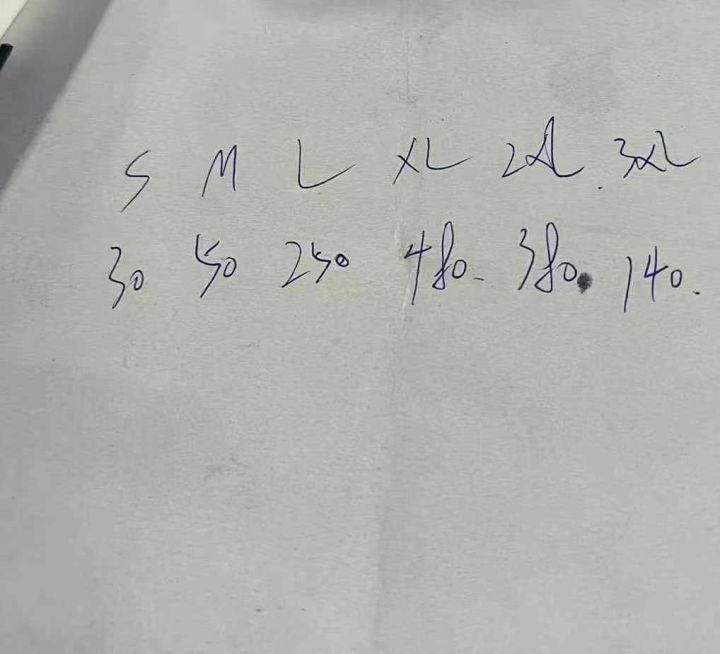 S M L XL 2XL 3XL
30 50 250 480 380 140